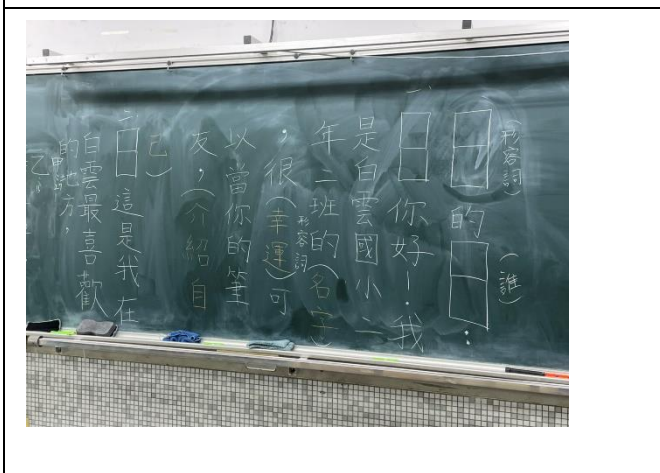 (形容詞) (誰)
的:
一、你好!我
是白雲國小二
年二班的(名字)
形容詞
,很(幸運)可
以當你的筆
友,(介紹自
己)
二、這是我在
白雲最喜歡
的地方,